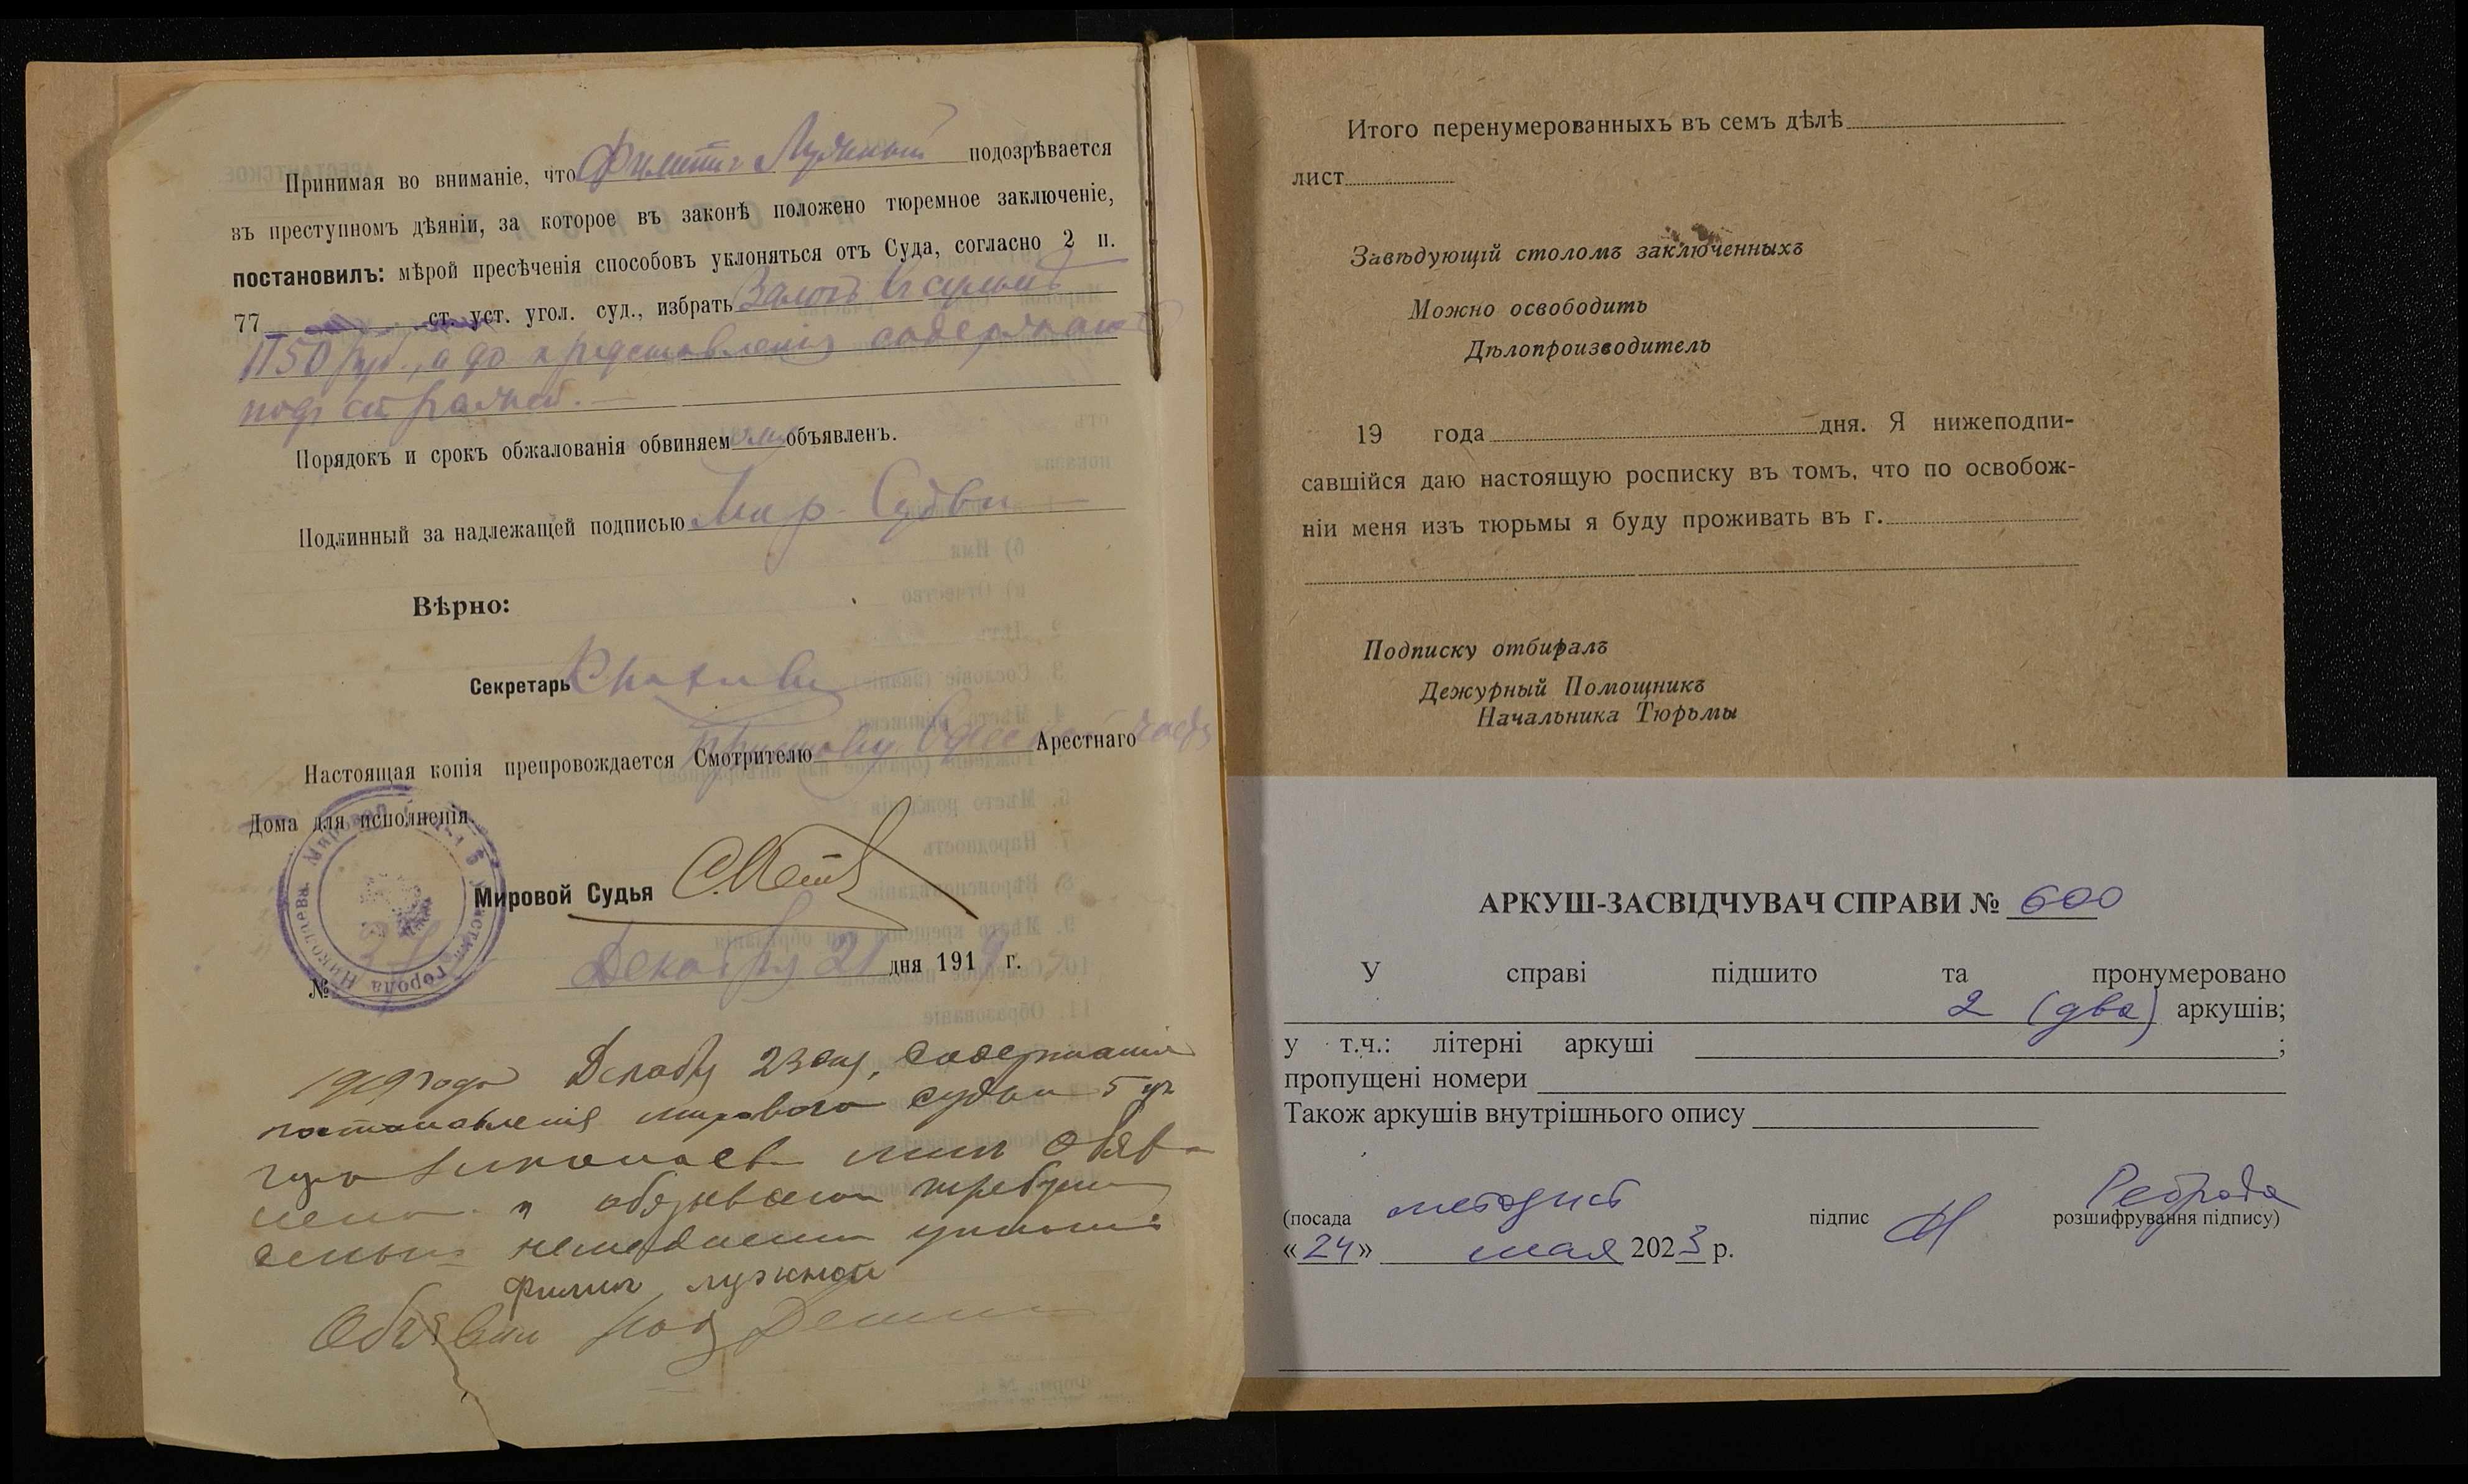 Принимая во вниманіе, что Филипп Лужный подозрѣвается
въ преступномъ дѣяніи, за которое въ законѣ положено тюремное заключеніе,
постановилъ: мѣрой пресѣченія способовъ уклоняться отъ Суда, согласно 2 п.
77 ст. уст. угол. суд., избрать Залогъ въ суммѣ
1150 руб., а до представленія содержать
подъ стражей.
Порядокъ и срокъ обжалованія обвиняем объявленъ.
Подлинный за надлежащей подписью Мир. Судьи
Вѣрно:
Секретарь
Настоящая копія препровождается Смотрителю Арестнаго
Дома для исполненія.
Мировой Судья
№ Декабря 21 дня 1919 г.
1919 года Декабр 23 дня, содержание
постановленія мирового судьи 5 уч
гор Николаев мне объяв
лено и
Филип лужной
Объявил
Итого перенумерованныхъ въ семъ дѣлѣ
лист
Завѣдующій столомъ заключенныхъ
Можно освободить
Дѣлопроизводитель
19 года дня. Я нижеподпи-
савшійся даю настоящую росписку въ томъ, что по освобож-
ніи меня изъ тюрьмы я буду проживать въ г.
Подписку отбиралъ
Дежурный Помощникъ
Начальника Тюрьмы
АРКУШ-ЗАСВІДЧУВАЧ СПРАВИ № 600
У справі підшито та пронумеровано
2 (два) аркушів;
у т.ч.: літерні аркуші ;
пропущені номери
Також аркушів внутрішнього опису
(посада методист підпис Реброва розшифрування підпису)
«24» мая 2023 р.